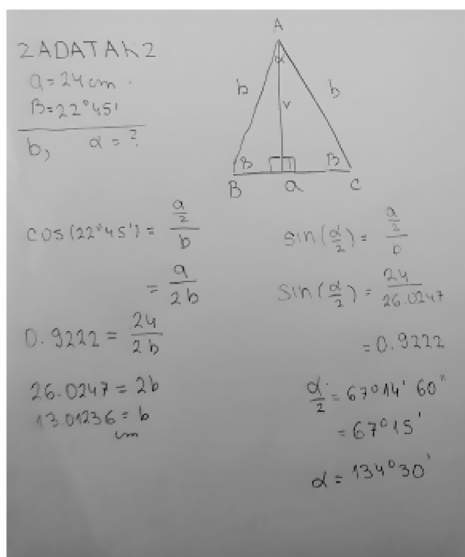 ZADATAK 2
a = 24 cm.
B = 22°45'
b, α = ?
A
α
b
v
b
B
B
B
a
C
cos(22°45') = \frac{\frac{a}{2}}{b}
= \frac{a}{2b}
0.9222 = \frac{24}{2b}
26.0247 = 2b
13.01236 = b
cm
sin(\frac{α}{2}) = \frac{\frac{a}{2}}{b}
sin(\frac{α}{2}) = \frac{24}{26.0247}
= 0.9222
\frac{α}{2} = 67°14'60"
= 67°15'
α = 134°30'